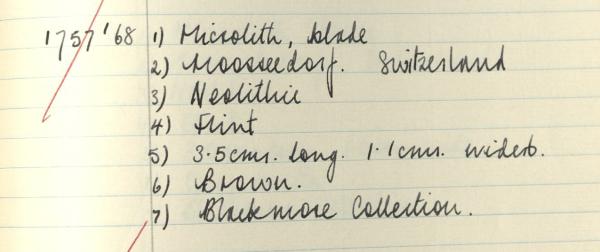 1757'68 1) Microlith, blade
2) Moosseedorf. Switzerland
3) Neolithic
4) Flint
5) 3.5cms. long. 1.1cms. widest.
6) Brown.
7) Blackmore Collection.